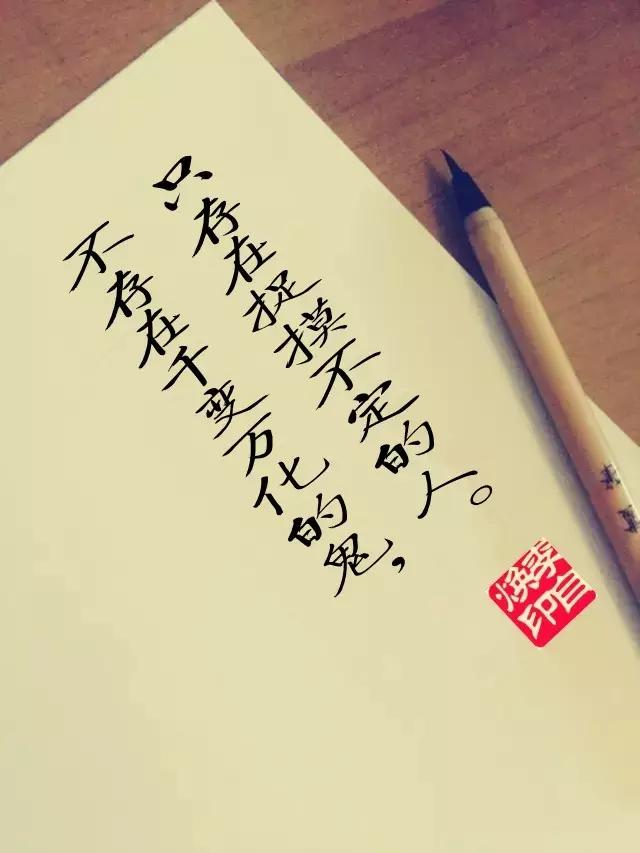 不存在千变万化的鬼，
只存在捉摸不定的人。
李自
焕印